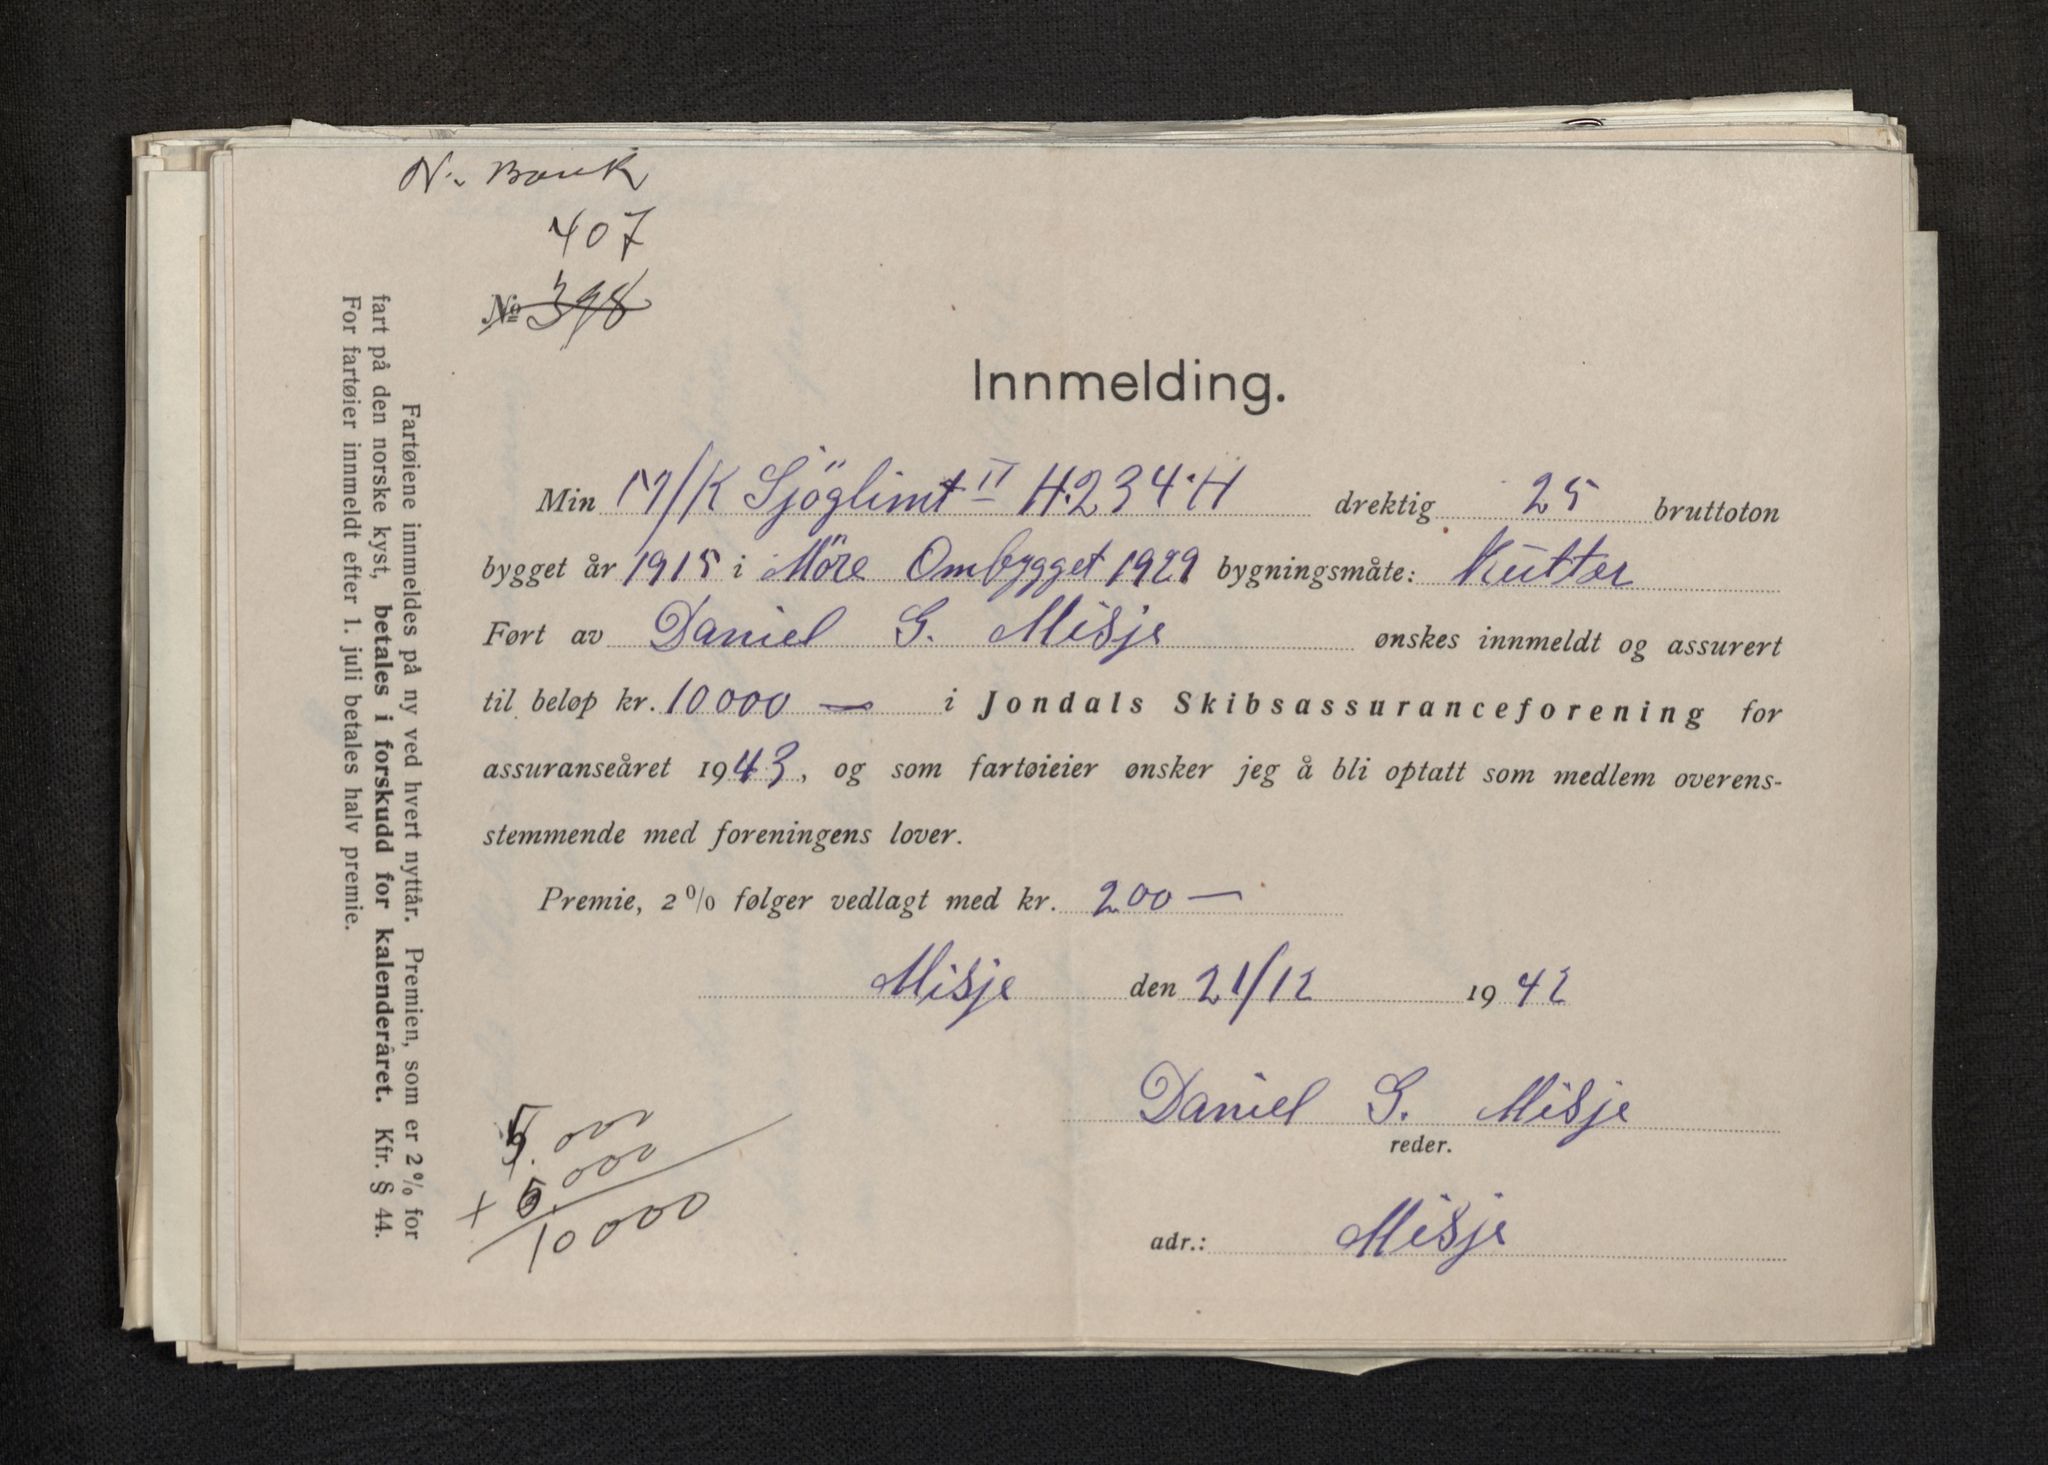 N. Bank
407
№ 398
Innmelding.
Min M/K Sjöglimt II H.234.H drektig 25 bruttoton
bygget år 1915 i Möre Ombygget 1929 bygningsmåte: Kutter
Ført av Daniel G. Misje ønskes innmeldt og assurert
til beløp kr. 10000 — i Jondals Skibsassuranceforening for
assuranseåret 1943, og som fartøieier ønsker jeg å bli optatt som medlem overens-
stemmende med foreningens lover.
Premie, 2% følger vedlagt med kr. 200 —
Misje den 21/12 1942
Daniel G. Misje
reder.
adr.: Misje
5.000
+ 5.000
10000
Fartøiene innmeldes på ny ved hvert nyttår. Premien, som er 2% for
fart på den norske kyst, betales i forskudd for kalenderåret. Kfr. § 44.
For fartøier innmeldt efter 1. juli betales halv premie.